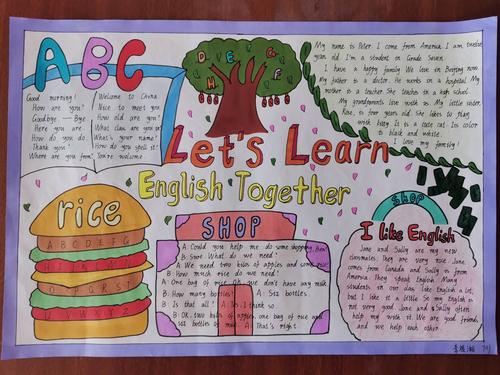 ABC
Good morning!
How are you?
Goodbye — Bye
Here you are.
How do you do.
Thank you!
Where are you from?
Welcome to China
Nice to meet you
How old are you?
What class are you in?
What's your name?
How do you spell it?
You're welcome
D E G
M H F
My name is Peter. I come from America. I am twelve
year old. I'm a student in Grade Seven.
I have a happy family. We live in Beijing now.
My father is a doctor. He works in a hospital. My
mother is a teacher. She teaches in a high school.
My grandparents live with us. My little sister,
Rose, is four years old. She likes to play
with kitty. It is a cute cat. Its color
is black and white.
I love my family!
Let's Learn
English Together
rice
A B C D E F G
U V W X Y Z
SHOP
A: Could you help me do some shopping, Ben?
B: Sure. What do we need?
A: We need two kilos of apples and some rice.
B: How much rice do we need?
A: One bag of rice. Oh, we don't have any milk.
B: How many bottles?
A: Six bottles.
B: Is that all?
A: Yes. I think so.
B: OK, two kilos of apples, one bag of rice and
six bottles of milk.
A: That's right.
SHOP
I like English
Jane and Sally are my new
classmates. They are very nice. Jane
comes from Canada and Sally is from
America. They speak English. Many
students in our class like English a lot,
but I like it a little. So my English is
not very good. Jane and Sally often
help me with it. We are good friends,
and we help each other.
701